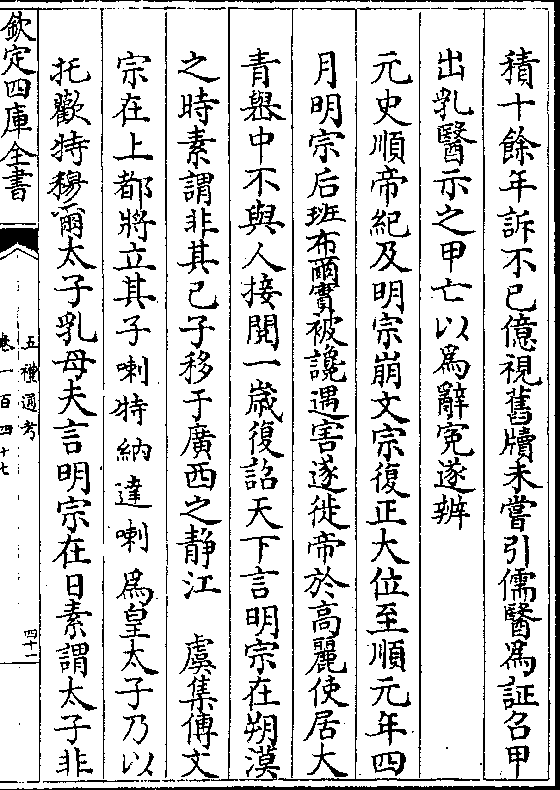 積十餘年訴不已億視舊牘未嘗引儒醫為証召甲
出乳醫示之甲亡以為辭寃遂辨
元史順帝紀及明宗崩文宗復正大位至順元年四
月明宗后班布爾實被讒遇害遂徙帝於高麗使居大
青㠀中不與人接閱一歲復詔天下言明宗在朔漠
之時素謂非其已子移于廣西之静江　虞集傳文
宗在上都將立其子喇特納達喇為皇太子乃以
托歡特穆爾太子乳母夫言明宗在日素謂太子非
欽定四庫全書
五禮通考
卷一百四十七
四十二